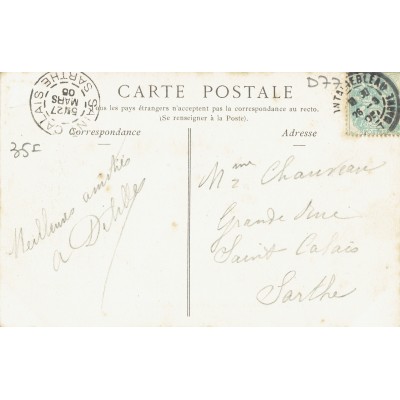 D77
CARTE POSTALE
Tous les pays étrangers n'acceptent pas la correspondance au recto.
(Se renseigner à la Poste).
Correspondance
Adresse
SAINT CALAIS
SARTHE
5N27
MARS
05
35F
Meilleures amitiés
Mme Chauveau
Grande Rue
Saint Calais
Sarthe